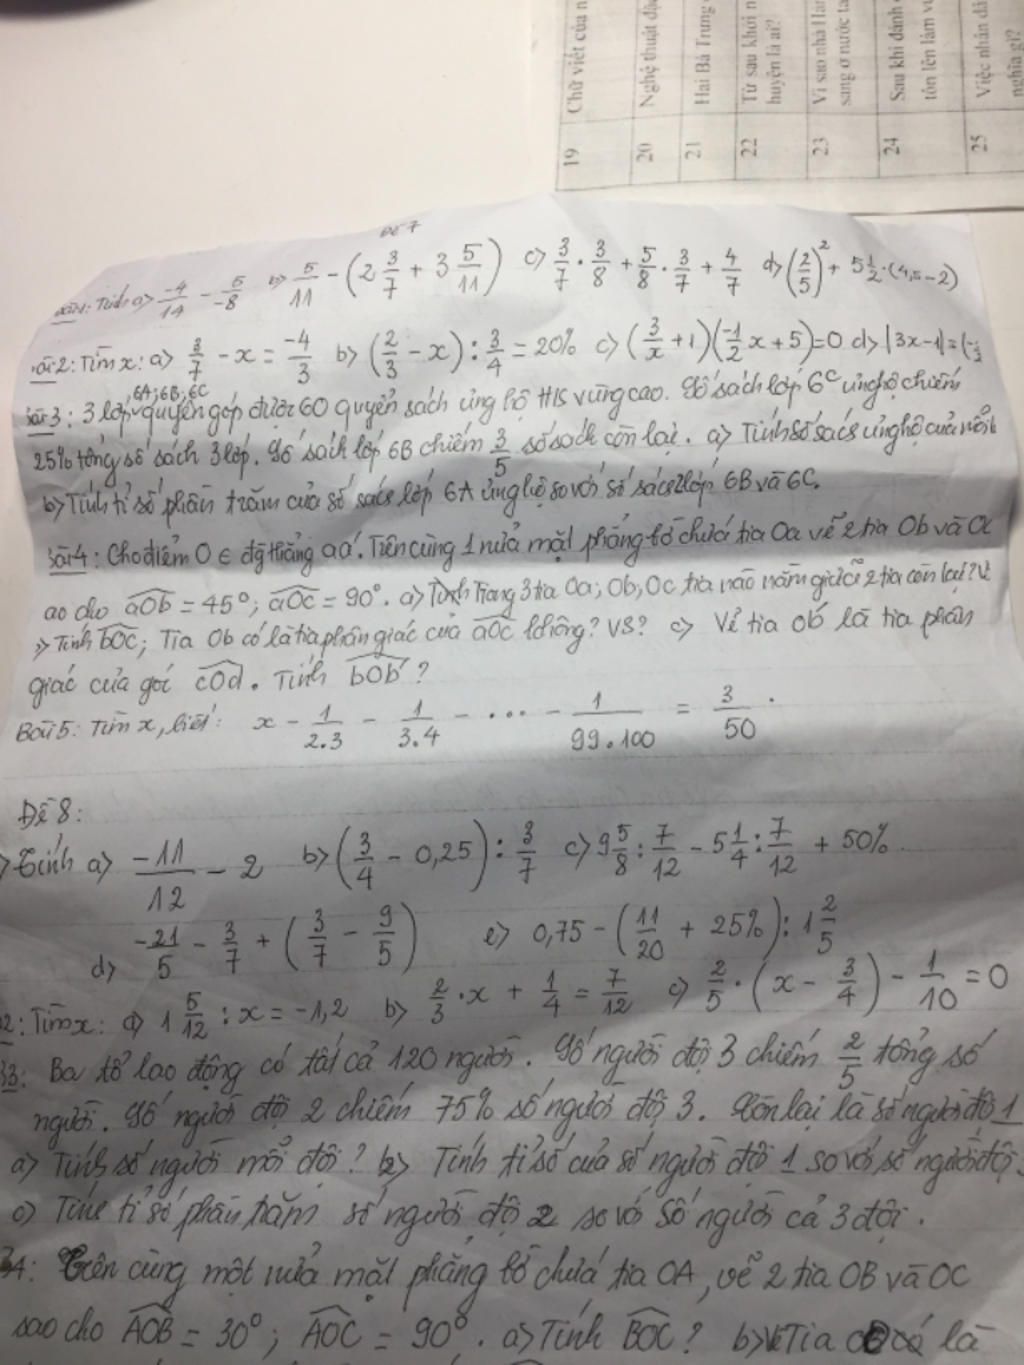 19 Chữ viết của n
20 Nghệ thuật đặc
21 Hai Bà Trưng
22 Từ sau khởi n
huyện là ai?
23 Vì sao nhà Hán
sang ở nước ta
24 Sau khi đánh
tôn lên làm vu
25 Việc nhân dâ
nghĩa gì?
Đề 7
Bài 1: Tính a) -4/14 - 5/-8 b) 5/11 - (2 3/7 + 3 5/11) c) 3/7 . 3/8 + 5/8 . 3/7 + 4/7 d) (2/5)² + 5 1/2 . (4,5 - 2)
Bài 2: Tìm x: a) 3/7 - x = -4/3 b) (2/3 - x) : 3/4 = 20% c) (3/x + 1)(-1/2 x + 5) = 0 d) |3x - 1| =
Bài 3: 3 lớp 6A; 6B; 6C quyên góp được 60 quyển sách ủng hộ HS vùng cao. Số sách lớp 6C ủng hộ chiếm
25% tổng số sách 3 lớp. Số sách lớp 6B chiếm 3/5 số sách còn lại. a) Tính số sách ủng hộ của mỗi
b) Tính tỉ số phần trăm của số sách lớp 6A ủng hộ so với số sách 2 lớp 6B và 6C.
Bài 4: Cho điểm O ∈ đg thẳng aa'. Trên cùng 1 nửa mặt phẳng bờ chứa tia Oa vẽ 2 tia Ob và Oc
ao cho aOb = 45°; aOc = 90°. a) Trong 3 tia Oa; Ob; Oc tia nào nằm giữa 2 tia còn lại? Vì
Tính bOc; Tia Ob có là tia phân giác của aOc không? VS? c) Vẽ tia Ob' là tia phân
giác của gói cOd. Tính bOb'?
Bài 5: Tìm x, biết: x - 1/2.3 - 1/3.4 - ... - 1/99.100 = 3/50.
Đề 8:
Tính a) -11/12 - 2 b) (3/4 - 0,25) : 3/7 c) 9 5/8 : 7/12 - 5 1/4 : 7/12 + 50%.
d) -21/5 - 3/7 + (3/7 - 9/5) e) 0,75 - (11/20 + 25%) : 1 2/5
2: Tìm x: a) 1 5/12 : x = -1,2 b) 2/3 . x + 1/4 = 7/12 c) 2/5 . (x - 3/4) - 1/10 = 0
B3: Ba tổ lao động có tất cả 120 người. Số người đội 3 chiếm 2/5 tổng số
người. Số người đội 2 chiếm 75% số người đội 3. Còn lại là số người đội 1
a) Tính số người mỗi đội? b) Tính tỉ số của số người đội 1 so với số người đội
c) Tính tỉ số phần trăm số người đội 2 so với số người cả 3 đội.
B4: Trên cùng một nửa mặt phẳng bờ chứa tia OA, vẽ 2 tia OB và OC
sao cho AOB = 30°; AOC = 90°. a) Tính BOC? b) Tia có là